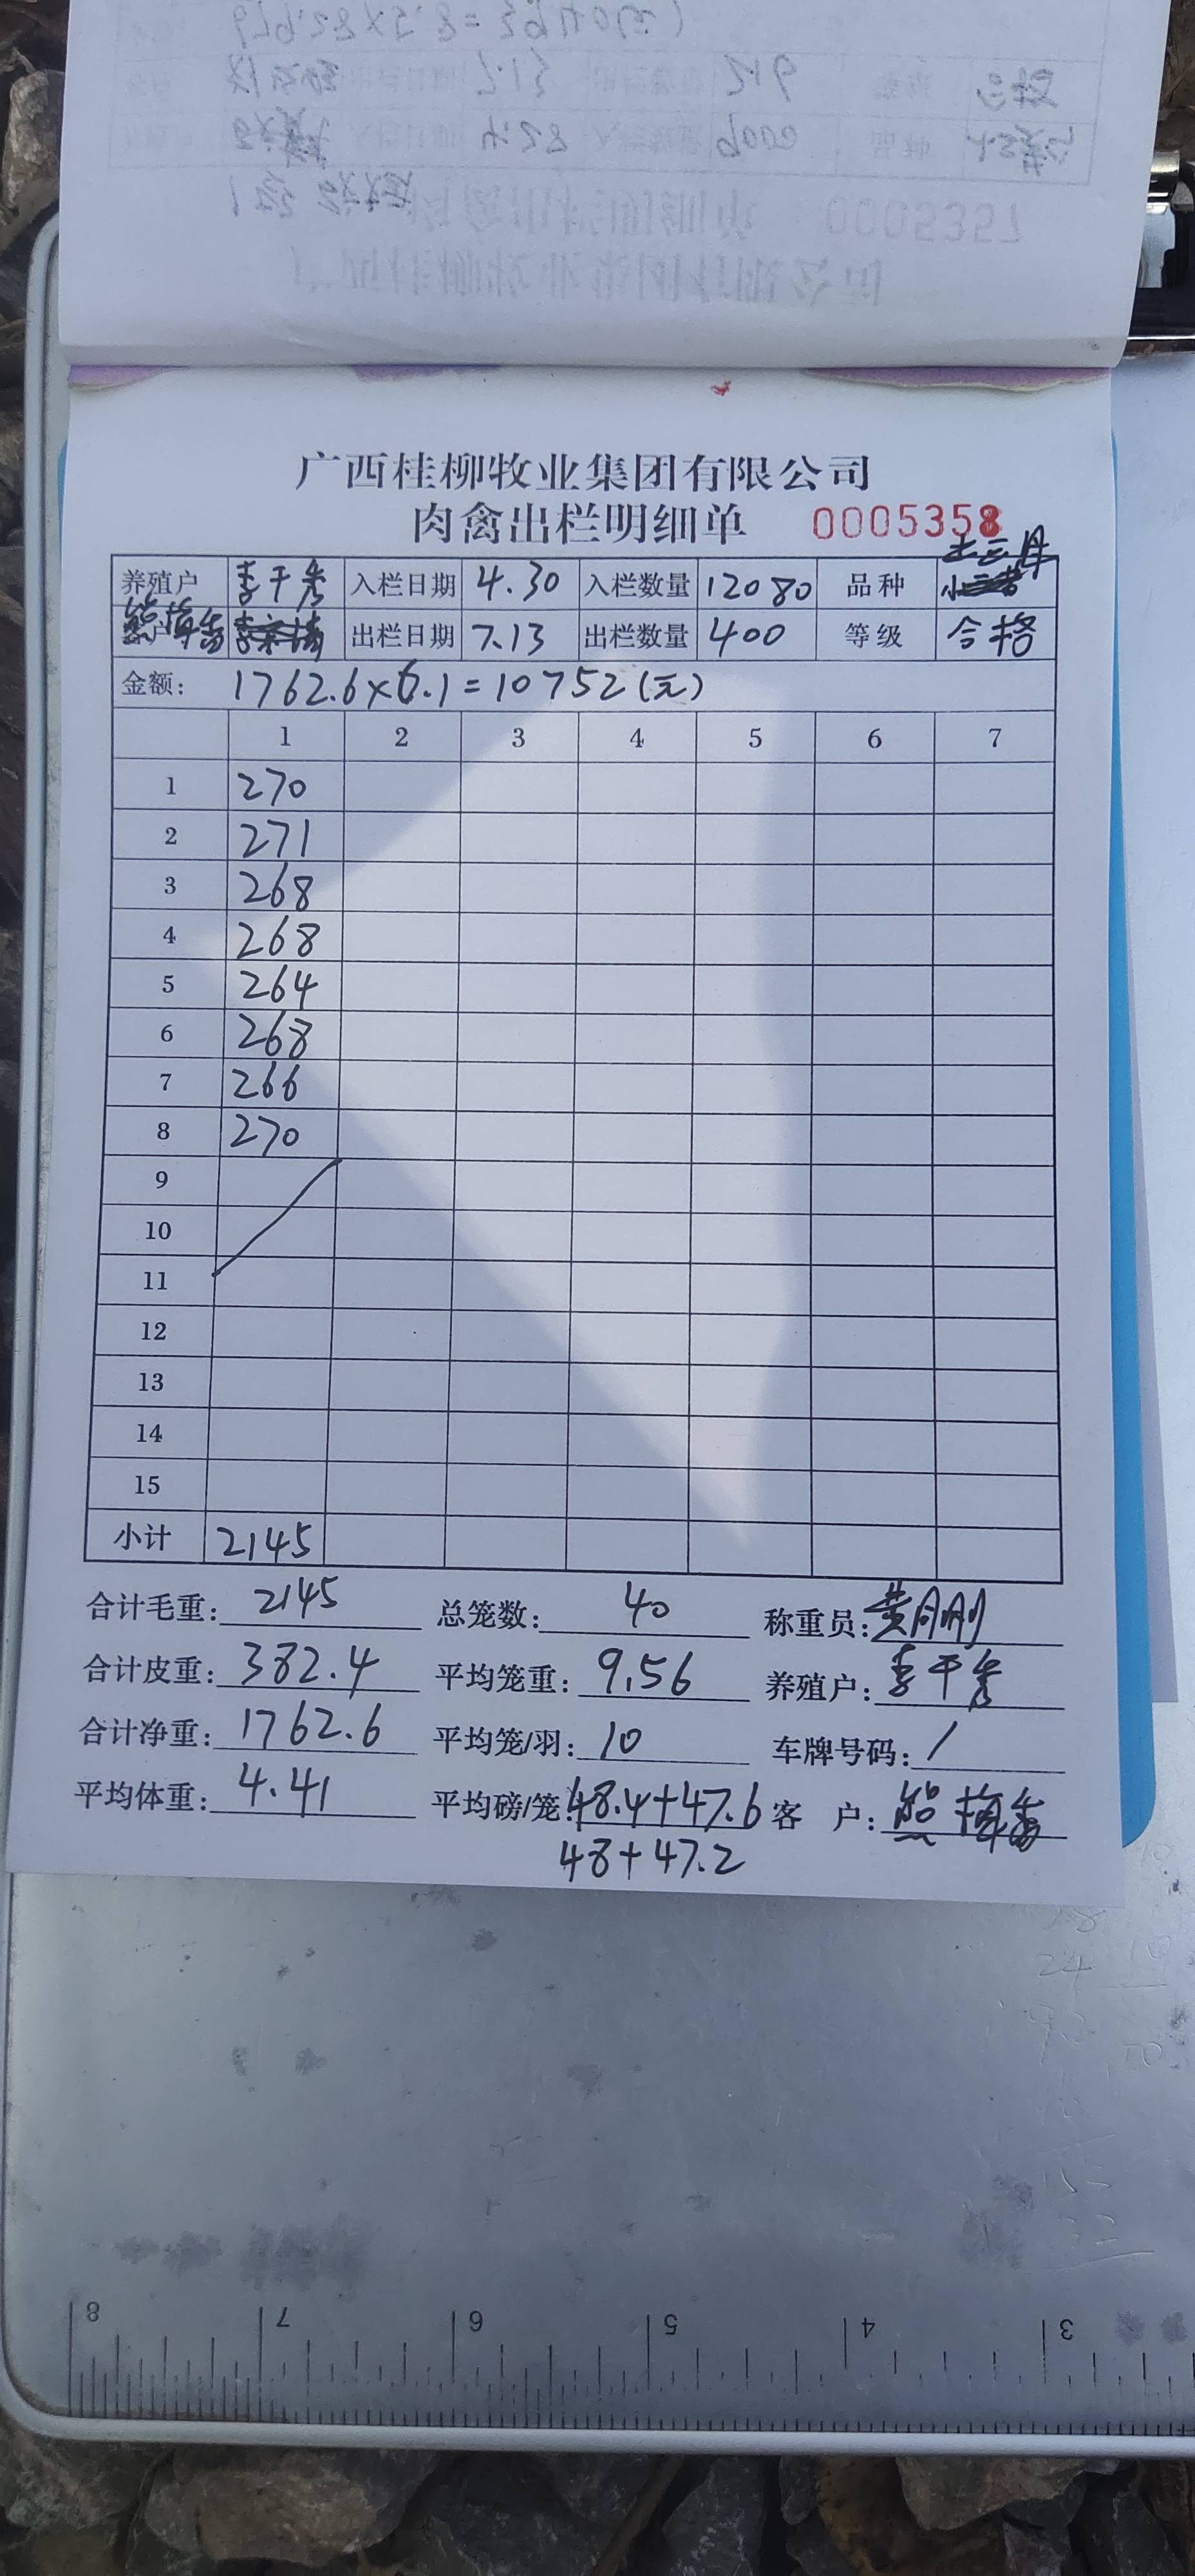 0005357
广西桂柳牧业集团有限公司
肉禽出栏明细单 0005358
土三月
养殖户 李干秀 入栏日期 4.30 入栏数量 12080 品种
熊梅香 户 出栏日期 7.13 出栏数量 400 等级 合格
金额: 1762.6×6.1=10752(元)
1 2 3 4 5 6 7
1 270
2 271
3 268
4 268
5 264
6 268
7 266
8 270
9
10
11
12
13
14
15
小计 2145
合计毛重: 2145 总笼数: 40 称重员: 黄月刚
合计皮重: 382.4 平均笼重: 9.56 养殖户: 李干秀
合计净重: 1762.6 平均笼/羽: 10 车牌号码: /
平均体重: 4.41 平均磅/笼: 48.4+47.6 客 户: 熊梅香
48+47.2
8 7 6 5 4 3